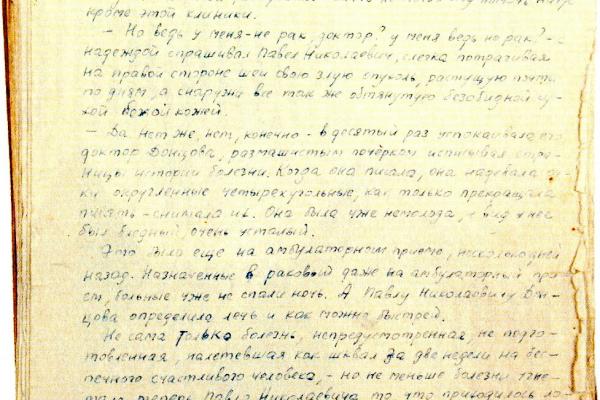 кроме этой клиники.
— Но ведь у меня - не рак, доктор? у меня ведь не рак? - с
надеждой спрашивал Павел Николаевич, слегка потрагивая
на правой стороне шеи свою злую опухоль, растущую почти
по дням, а снаружи всё так же обтянутую безобидной су-
хой белой кожей.
— Да нет же, нет, конечно - в десятый раз успокаивала его
доктор Донцова, размашистым почерком исписывая стра-
ницы истории болезни. Когда она писала, она надевала оч-
ки округленные четырехугольные, как только прекращала
писать - снимала их. Она была уже немолода, и вид у неё
был бледный, очень усталый.
Это было еще на амбулаторном приеме, несколько дней
назад. Назначенные в раковый даже на амбулаторный при-
ем, больные уже не спали ночь. А Павлу Николаевичу Дон-
цова определила лечь и как можно быстрей.
Не сама только болезнь, непредусмотренная, не подго-
товленная, налетевшая как шквал за две недели на бес-
печного счастливого человека, - но не меньше болезни угне-
тало теперь Павла Николаевича то, что приходилось ло-